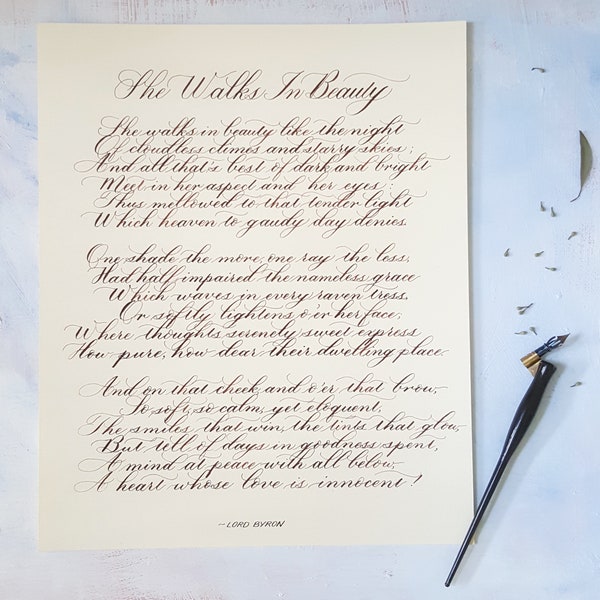 She Walks In Beauty
She walks in beauty like the night
Of cloudless climes and starry skies;
And all that's best of dark and bright
Meet in her aspect and her eyes:
Thus mellowed to that tender light
Which heaven to gaudy day denies.
One shade the more, one ray the less,
Had half impaired the nameless grace
Which waves in every raven tress,
Or softly lightens o'er her face;
Where thoughts serenely sweet express
How pure, how dear their dwelling place.
And on that cheek and o'er that brow,
So soft, so calm, yet eloquent,
The smiles that win, the tints that glow,
But tell of days in goodness spent,
A mind at peace with all below,
A heart whose love is innocent!
-LORD BYRON